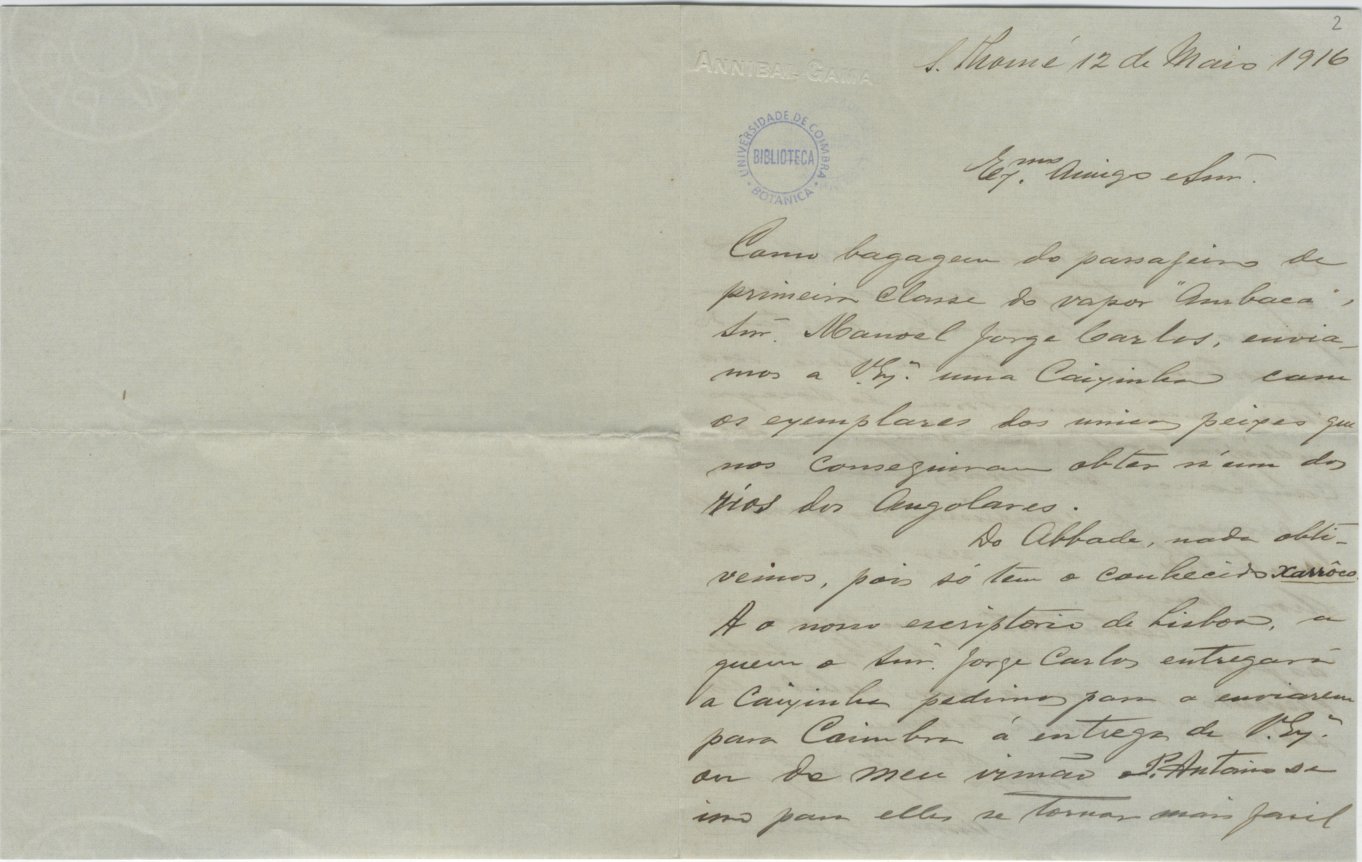 2
ANNIBAL GAMA
S. Thomé 12 de Maio 1916
UNIVERSIDADE DE COIMBRA
BIBLIOTECA
BOTANICA
Ex.mo Amigo e Snr.
Como bagagem do passageiro de
primeira classe do vapor "Ambaca",
Snr. Manoel Jorge Carlos, envia-
mos a V. Ex.ª uma Caixinha com
os exemplares dos unicos peixes que
nos conseguiram obter n'um dos
rios dos Angolares.
Do Abbade, nada obti-
vemos, pois só tem o conhecido xarrôco.
Ao nosso escriptorio de Lisboa, a
quem o Snr. Jorge Carlos entregará
a Caixinha pedimos para a enviarem
para Coimbra á entrega de V. Ex.ª
ou de meu irmão P. Antonio se
isso para elles se tornar mais facil